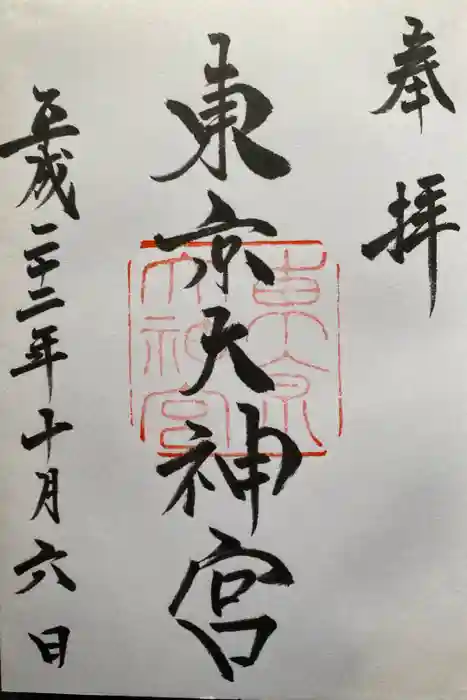 奉拝
東京大神宮
東京
大神宮
平成二十二年十月六日